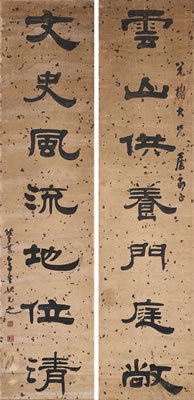 雲山供養門庭敞
文史風流地位清